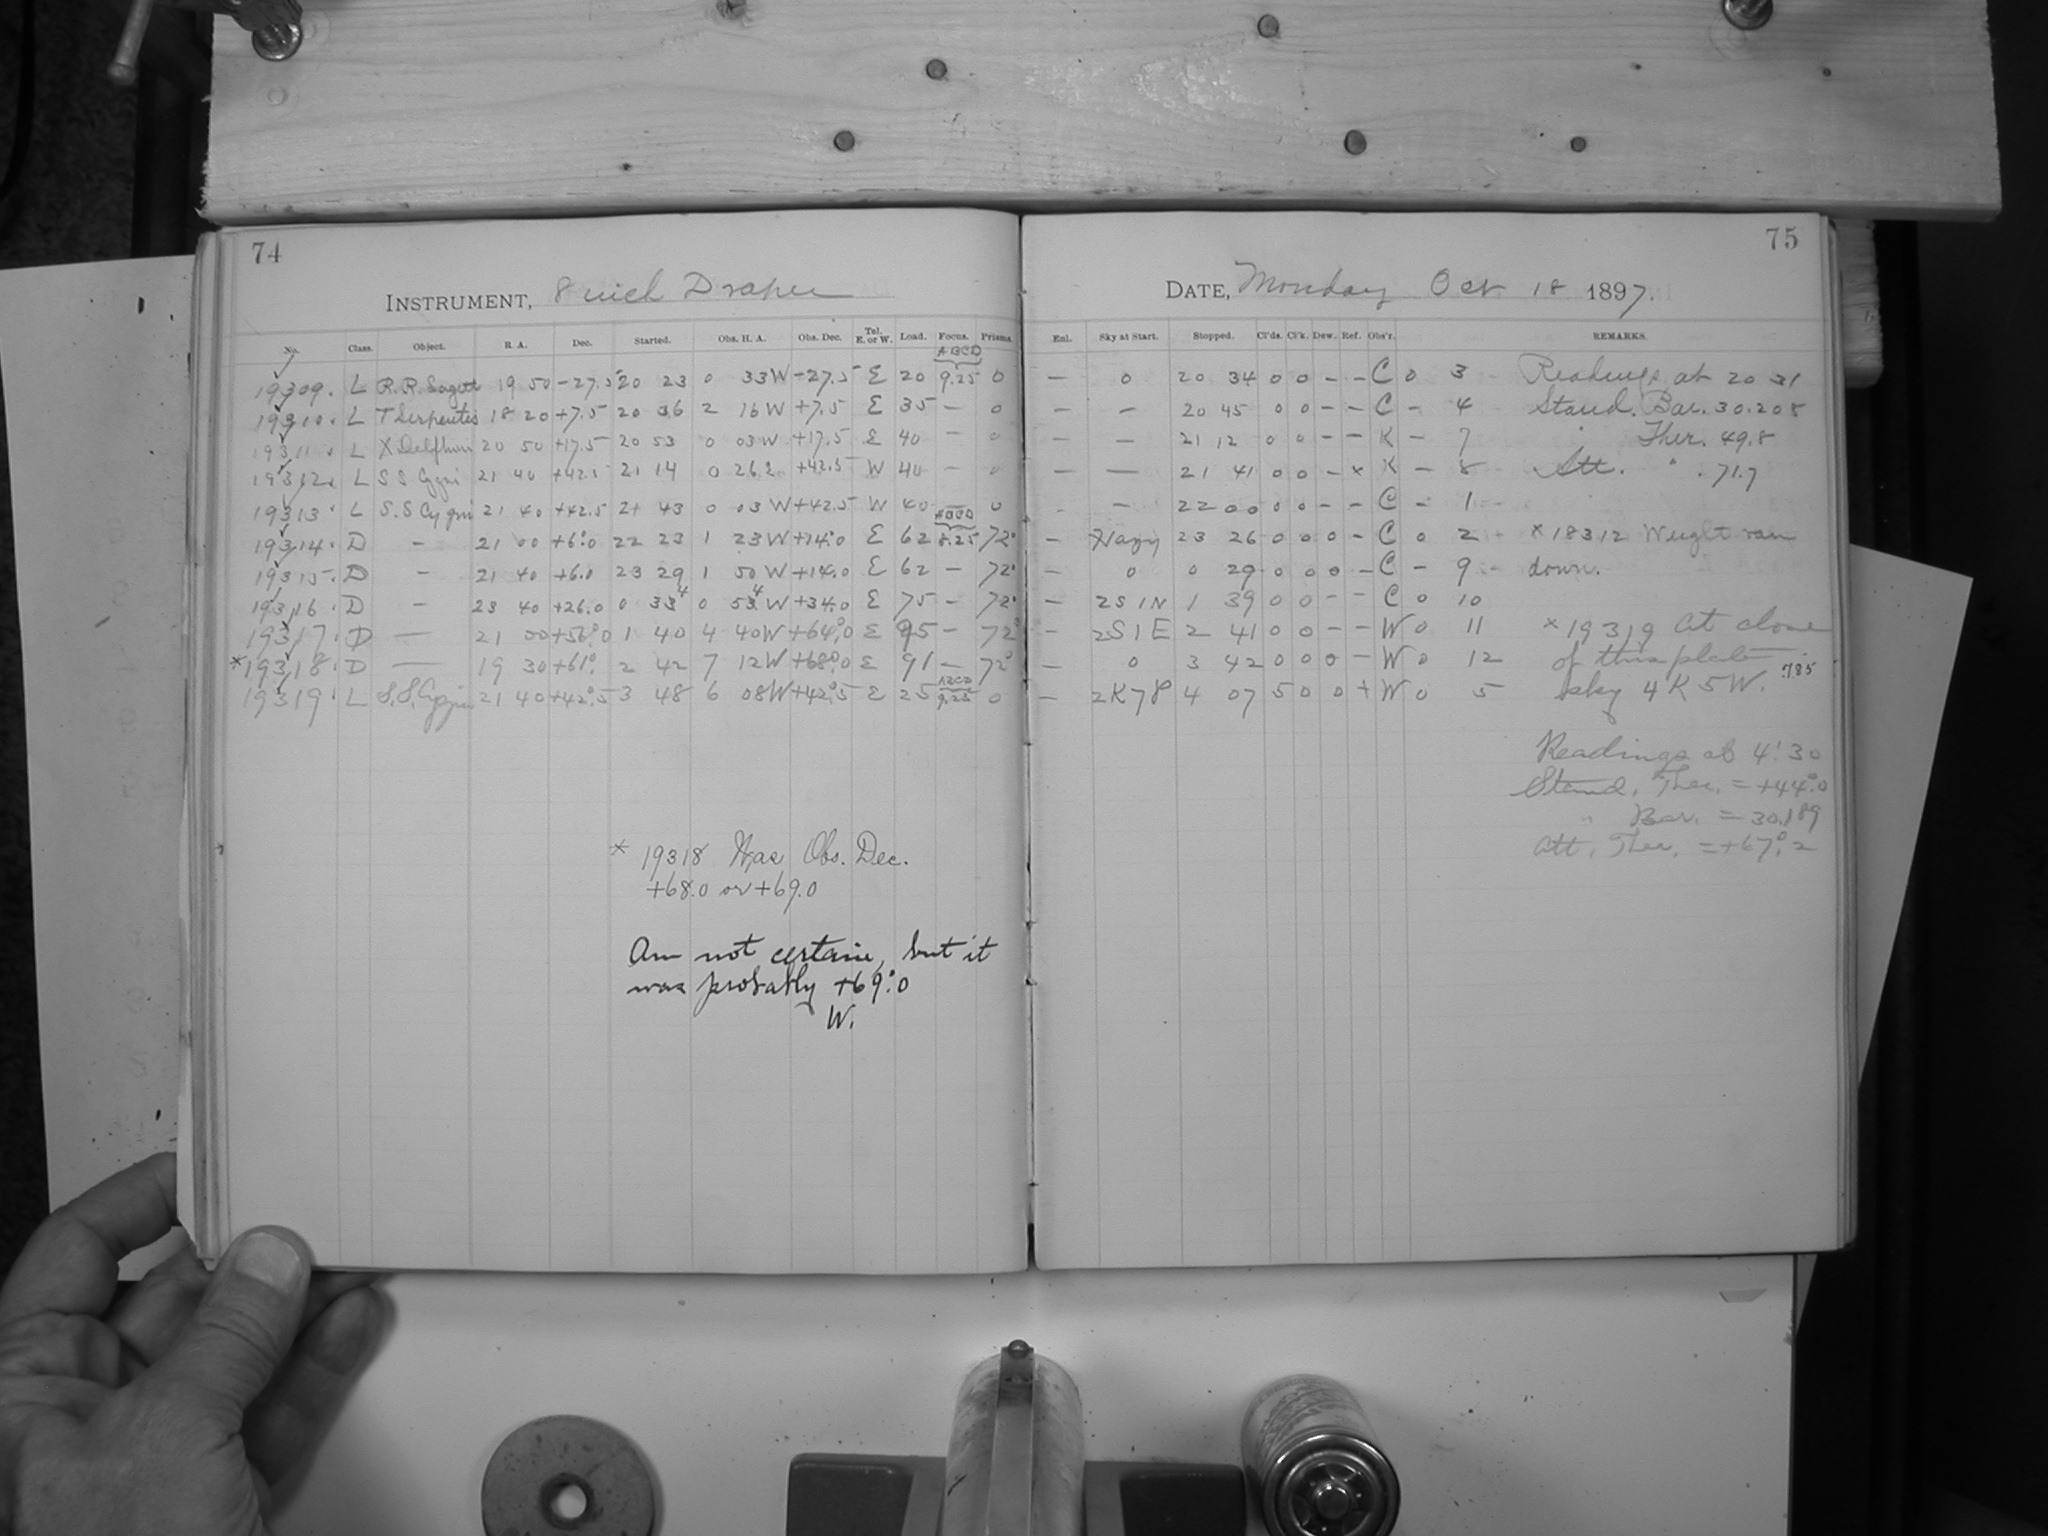 74
INSTRUMENT, 8 inch Draper
No. Class. Object. R. A. Dec. Started. Obs. H. A. Obs. Dec. Tel. E. or W. Load. Focus. Prisms.
ABCD
19309. L R.R. Sagitt 19 50 -27.5 20 23 0 33W -27.5 E 20 9.25 0
19310. L T Serpentis 18 20 +7.5 20 36 2 16W +7.5 E 35 — 0
19311. L X Delphini 20 50 +17.5 20 53 0 03W +17.5 E 40 — 0
19312. L S S Cygni 21 40 +42.5 21 14 0 26E +42.5 W 40 — 0
19313. L S.S Cygni 21 40 +42.5 21 43 0 03W +42.5 W 40 — 0
ABCD
19314. D — 21 00 +6.0 22 23 1 23W +14.0 E 62 8.25 72°
19315. D — 21 40 +6.0 23 29 1 50W +14.0 E 62 — 72°
19316. D — 23 40 +26.0 0 33 4 0 53 4 W +34.0 E 75 — 72°
19317. D — 21 00 +56°.0 1 40 4 40W +64°.0 E 95 — 72°
*19318. D — 19 30 +61°. 2 42 7 12W +68°.0 E 91 — 72°
ABCD
19319. L S.S. Cygni 21 40 +42°.5 3 48 6 08W +42°.5 E 25 9.25 0
* 19318 Was Obs. Dec.
+68.0 or +69.0
Am not certain, but it
was probably +69°.0
W.
75
DATE, Monday Oct 18 1897.
Enl. Sky at Start. Stopped. Cl'ds. Cl'k. Dew. Ref. Obs'r. REMARKS.
— 0 20 34 0 0 – – C 0 3 Readings at 20 31
— — 20 45 0 0 – – C – 4 Stand. Bar. 30.208
— — 21 12 0 0 – – K – 7 " Ther. 49.8
— — 21 41 0 0 – x K – 8 Att. " . 71.7
– — 22 00 0 0 – – C – 1
– Hazy 23 26 0 0 0 – C 0 2 x 18312 Weight ran
— 0 0 29 0 0 0 – C – 9 down.
— 2S1N 1 39 0 0 – – C 0 10
— 2S1E 2 41 0 0 – – W 0 11 x 19319 At close
— 0 3 42 0 0 0 – W 0 12 of this plate
.785
— 2K7P 4 07 5 0 0 + W 0 5 sky 4K5W.
Readings at 4:30
Stand. Ther. = +44°.0
" Bar. = 30.189
Att. Ther. = +67°.2